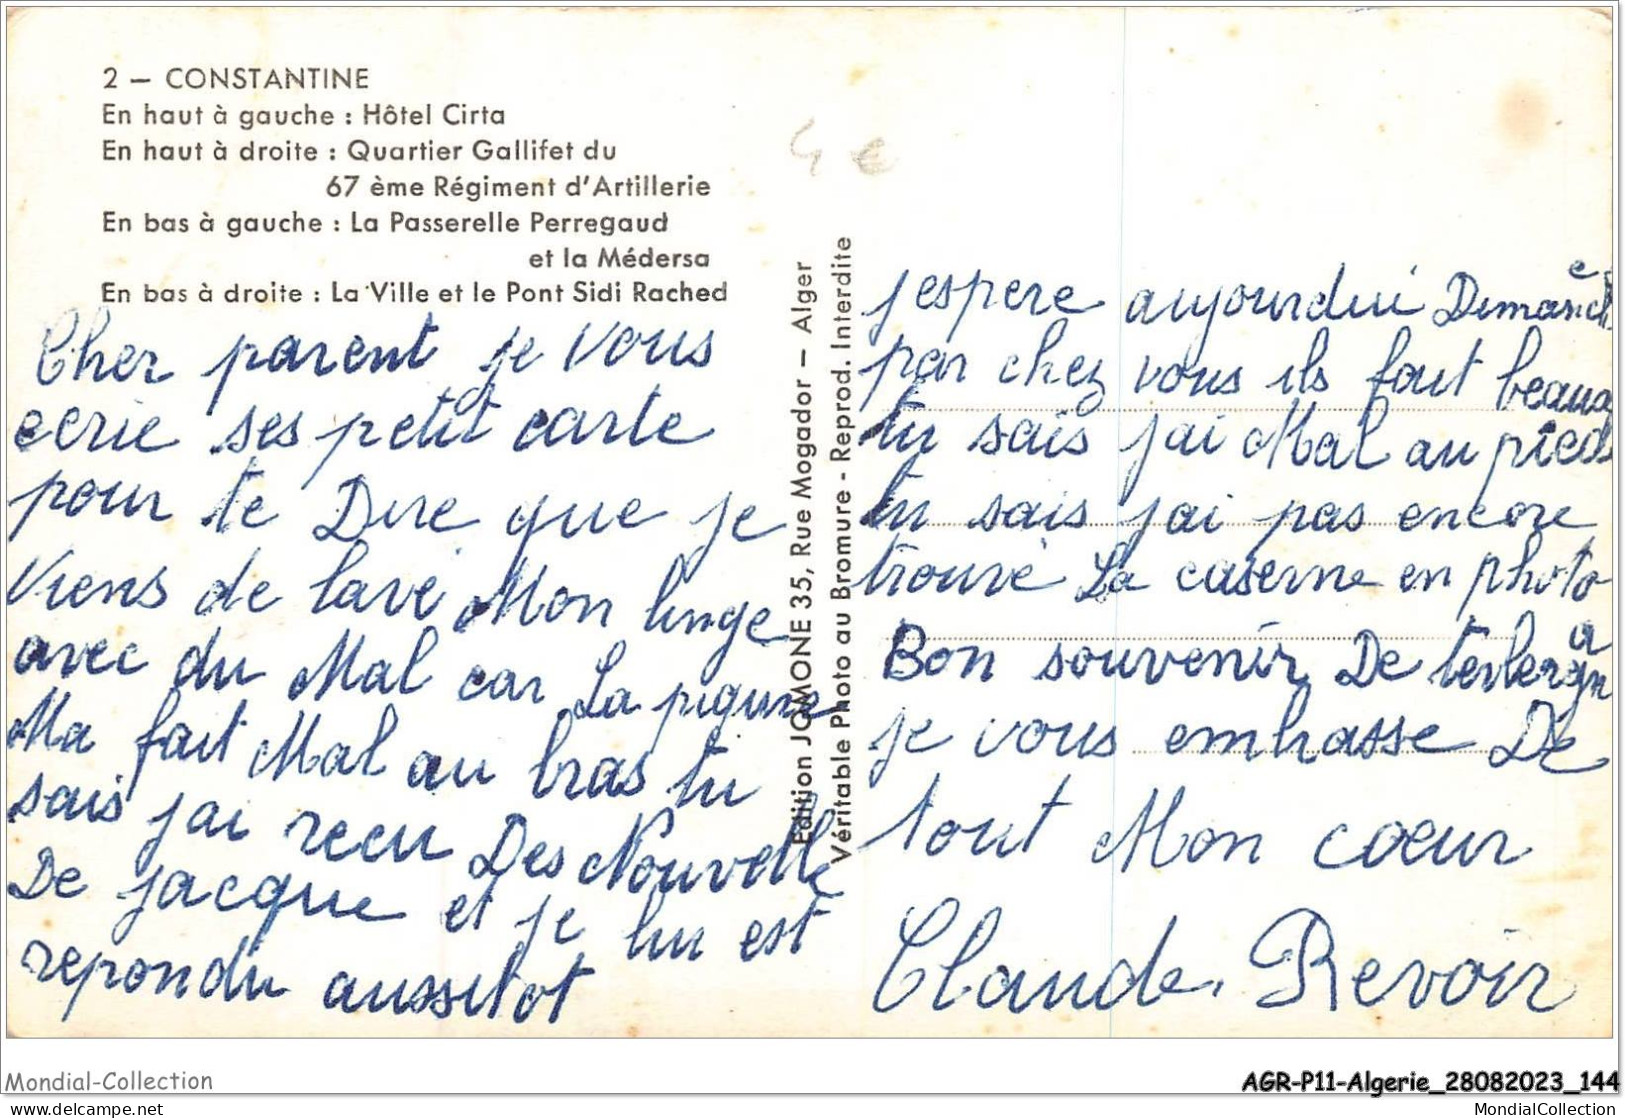 2 — CONSTANTINE
En haut à gauche : Hôtel Cirta
En haut à droite : Quartier Gallifet du
67 ème Régiment d'Artillerie
En bas à gauche : La Passerelle Perregaud
et la Médersa
En bas à droite : La Ville et le Pont Sidi Rached
Cher parent je vous
ecrie ses petit carte
pour te Dire que je
Viens de lavé Mon linge
avec du Mal car La piqure
Ma fait Mal au bras tu
sais j ai recu Des Nouvelle
De jacque et je lui est
repondu aussitot
Edition JOMONE 35, Rue Mogador — Alger
Véritable Photo au Bromure - Reprod. Interdite
4 €
j espere aujourdui Dimanche
par chez vous ils fout beau
tu sais j ai Mal au pied
tu sais j ai pas encore
trouvé La caserne en photo
Bon souvenir De
je vous embasse De
tout Mon coeur
Claude. Revoir
Mondial-Collection
AGR-P11-Algerie_28082023_144
www.delcampe.net
MondialCollection